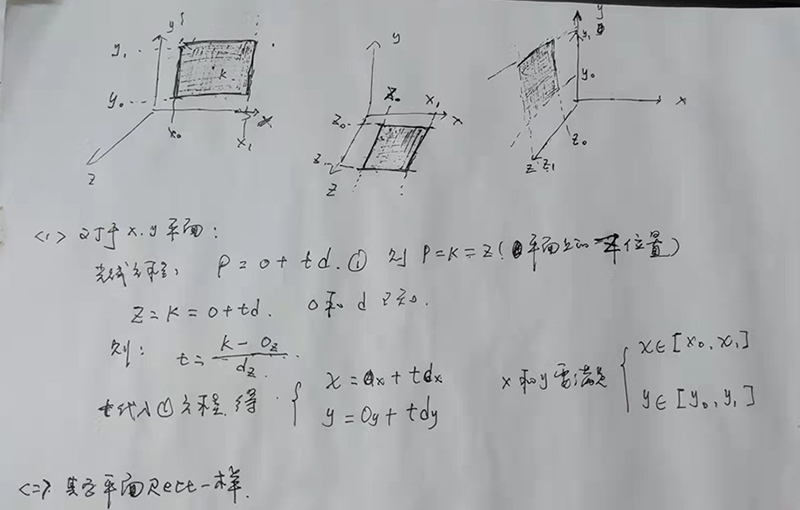 y
y₁
y₀
k
x₀
x₁
x
z
y
z₀
x₀
x₁
x
z₁
z
y
y₁
y₀
x
z₀
z
z₁
<1> 对于 x.y 平面:
光线方程: P = o + td. ① 则 P = k = z (平面上的 z 位置)
z = k = o + td. o 和 d 已知.
则: t = (k - Oz) / dz.
t代入①方程.得 { x = Ox + tdx
y = Oy + tdy
x 和 y 需满足 { x ∈ [x₀, x₁]
y ∈ [y₀, y₁]
<二> 其它平面Rect一样.